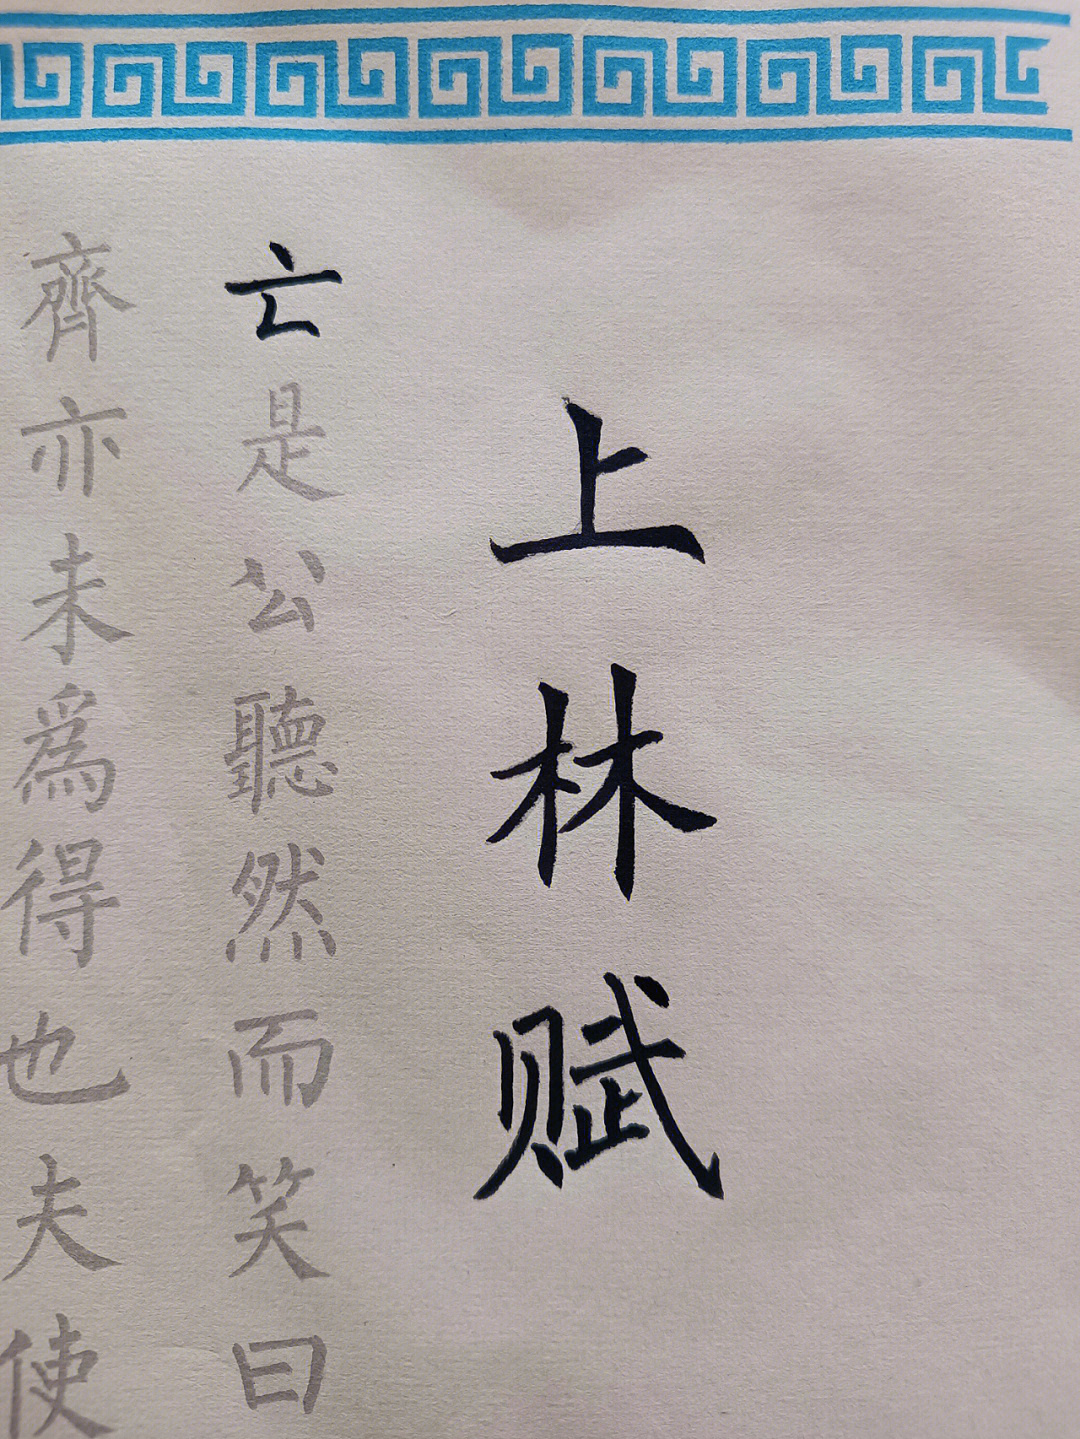 上林赋
亡是公聽然而笑曰
齊亦未為得也夫使